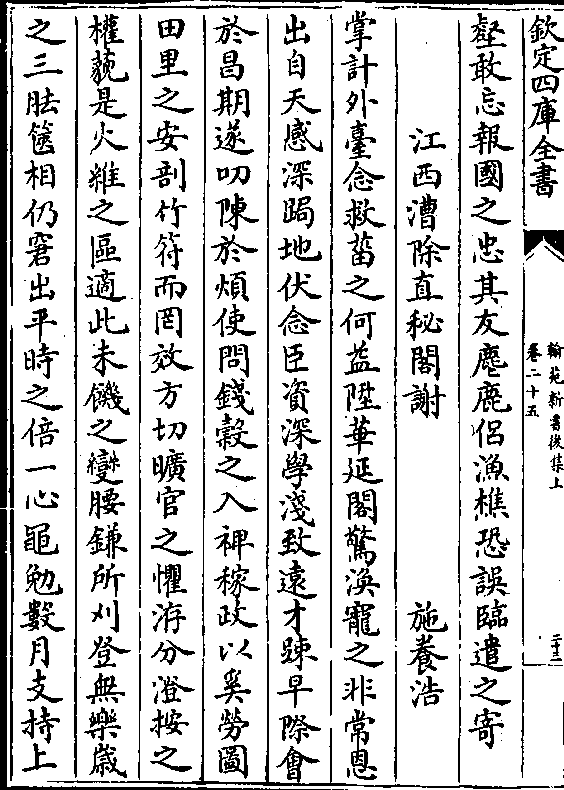 欽定四庫全書
翰苑新書後集上
卷二十五
二十二
壑敢忘報國之忠其友麀鹿侣漁樵恐誤臨遣之寄
江西漕除直秘閣謝
施養浩
掌計外臺念救菑之何益陞華延閣驚渙寵之非常恩
出自天感深跼地伏念臣資深學淺致遠才踈早際會
於昌期遂叨陳於煩使問錢穀之入裨稼政以奚勞圖
田里之安剖竹符而罔效方切曠官之懼洊分澄按之
權藐是火雜之區適此未饑之變腰鎌所刈登無樂歳
之三胠篋相仍窘出平時之倍一心黽勉數月支持上